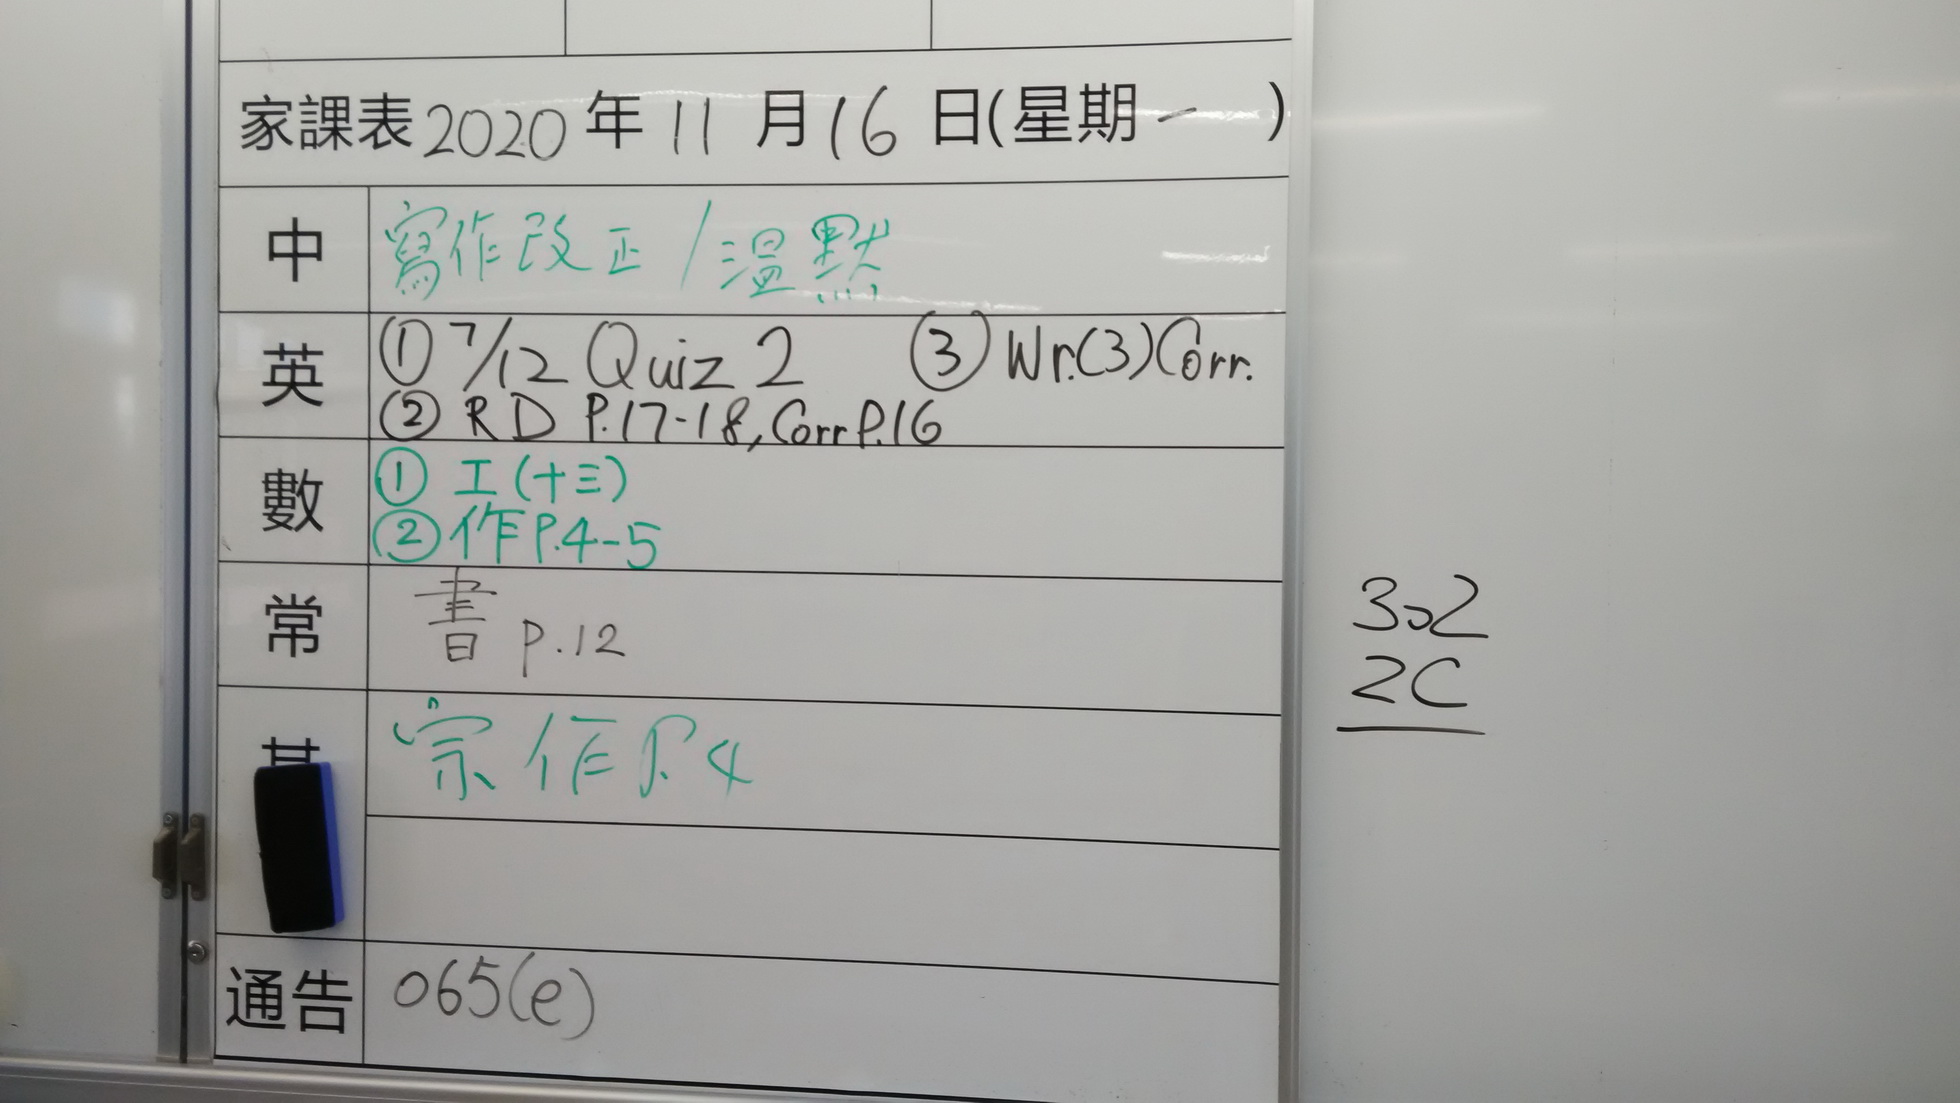 家課表 2020 年 11 月 16 日(星期一)
中 寫作改正/溫默
英 ① 7/12 Quiz 2 ③ Wr.(3) Corr.
② RD P.17-18, Corr P.16
數 ① 工(十三)
② 作 P.4-5
常 書 p.12
宗作 P.4
通告 065(e)
302
2C